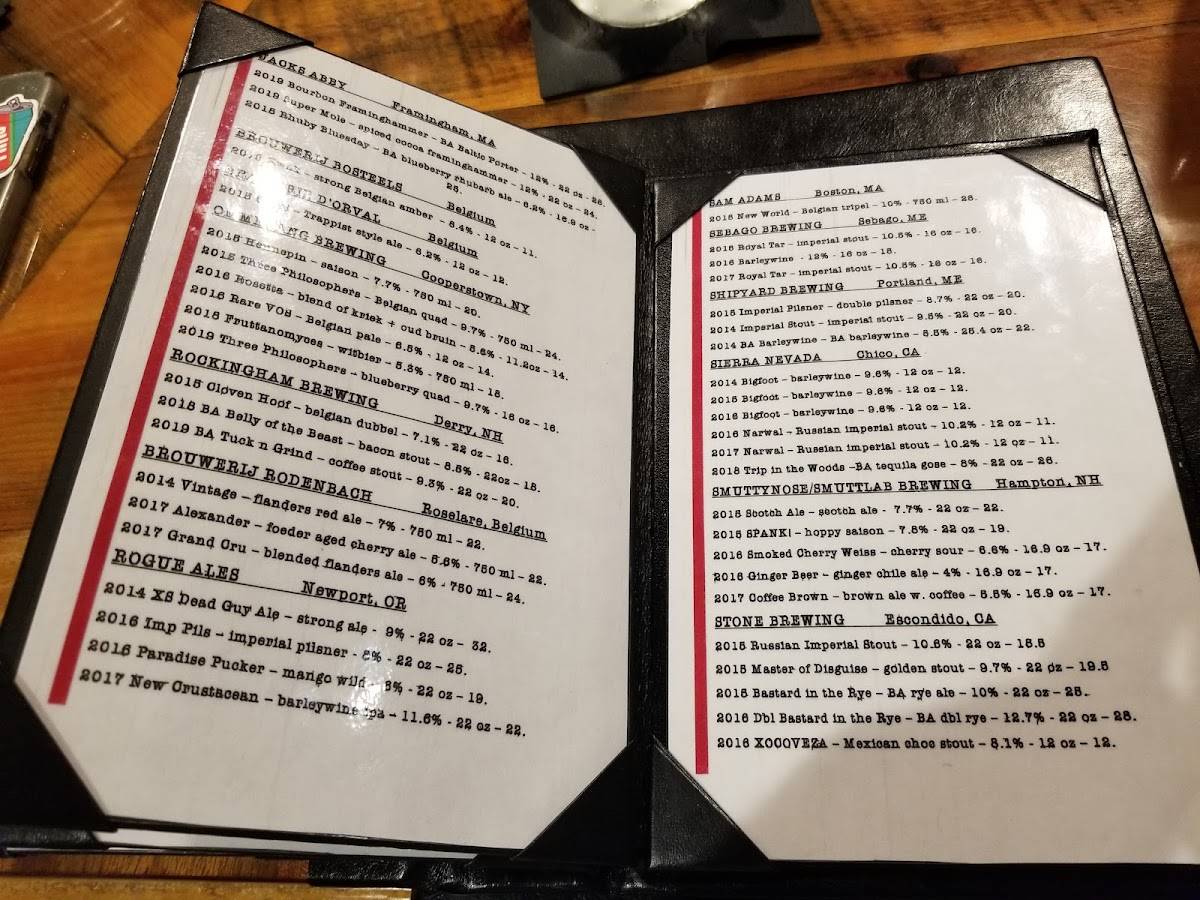 JACKS ABBY Framingham, MA
2019 Bourbon Framinghammer – BA Baltic Porter – 12% - 22 oz - 28.
2019 Super Mole – spiced cocoa framinghammer – 12% - 22 oz - 24.
2018 Rhuby Bluesday – BA blueberry rhubarb ale – 6.2% - 16.9 oz -
BROUWERIJ BOSTEELS Belgium
strong Belgian amber - 8.4% - 12 oz – 11.
D'ORVAL Belgium
Trappist style ale – 6.2% - 12 oz – 12.
BREWING Cooperstown, NY
2018 Hennepin – saison – 7.7% - 750 ml – 20.
2018 Three Philosophers – Belgian quad – 9.7% - 750 ml – 24.
2016 Rosetta – blend of kriek + oud bruin – 5.6% - 11.2oz – 14.
2016 Rare VOS – Belgian pale – 6.5% - 12 oz – 14.
2018 Fruitianomyces – witbier – 5.3% - 750 ml – 18.
2019 Three Philosophers – blueberry quad – 9.7% - 16 oz – 16.
ROCKINGHAM BREWING Derry, NH
2015 Cloven Hoof – belgian dubbel – 7.1% - 22 oz – 16.
2018 BA Belly of the Beast – bacon stout – 8.8% - 22oz – 18.
2019 BA Tuck n Grind – coffee stout – 9.3% - 22 oz – 20.
BROUWERIJ RODENBACH Roselare, Belgium
2014 Vintage – flanders red ale – 7% - 750 ml – 22.
2017 Alexander – foeder aged cherry ale – 5.6% - 750 ml – 22.
2017 Grand Cru – blended flanders ale – 6% - 750 ml – 24.
ROGUE ALES Newport, OR
2014 XS Dead Guy Ale – strong ale - 9% - 22 oz – 32.
2016 Imp Pils – imperial pilsner - 8% - 22 oz – 25.
2016 Paradise Pucker – mango wild - 8% - 22 oz – 19.
2017 New Crustacean – barleywine ipa – 11.6% - 22 oz – 22.
SAM ADAMS Boston, MA
2018 New World – Belgian tripel – 10% - 750 ml – 28.
SEBAGO BREWING Sebago, ME
2016 Royal Tar – imperial stout – 10.5% - 16 oz – 16.
2016 Barleywine - 12% - 16 oz – 18.
2017 Royal Tar – imperial stout – 10.5% - 16 oz – 16.
SHIPYARD BREWING Portland, ME
2015 Imperial Pilsner – double pilsner – 8.7% - 22 oz – 20.
2014 Imperial Stout – imperial stout – 9.5% - 22 oz – 20.
2014 BA Barleywine – BA barleywine – 8.5% - 25.4 oz – 22.
SIERRA NEVADA Chico, CA
2014 Bigfoot – barleywine – 9.6% - 12 oz – 12.
2015 Bigfoot – barleywine – 9.6% - 12 oz – 12.
2016 Bigfoot – barleywine – 9.6% - 12 oz – 12.
2016 Narwal – Russian imperial stout – 10.2% - 12 oz – 11.
2017 Narwal – Russian imperial stout – 10.2% - 12 oz – 11.
2018 Trip in the Woods –BA tequila gose – 8% - 22 oz – 26.
SMUTTYNOSE/SMUTTLAB BREWING Hampton, NH
2015 Scotch Ale – scotch ale - 7.7% - 22 oz – 22.
2015 SPANK! – hoppy saison – 7.8% - 22 oz – 19.
2016 Smoked Cherry Weiss – cherry sour – 6.6% - 16.9 oz – 17.
2016 Ginger Beer – ginger chile ale – 4% - 16.9 oz – 17.
2017 Coffee Brown – brown ale w. coffee – 5.5% - 16.9 oz – 17.
STONE BREWING Escondido, CA
2015 Russian Imperial Stout – 10.6% - 22 oz – 18.5
2015 Master of Disguise – golden stout – 9.7% - 22 oz – 19.5
2015 Bastard in the Rye – BA rye ale – 10% - 22 oz – 25.
2016 Dbl Bastard in the Rye – BA dbl rye – 12.7% - 22 oz – 28.
2016 XOCOVEZA – Mexican choc stout – 8.1% - 12 oz – 12.